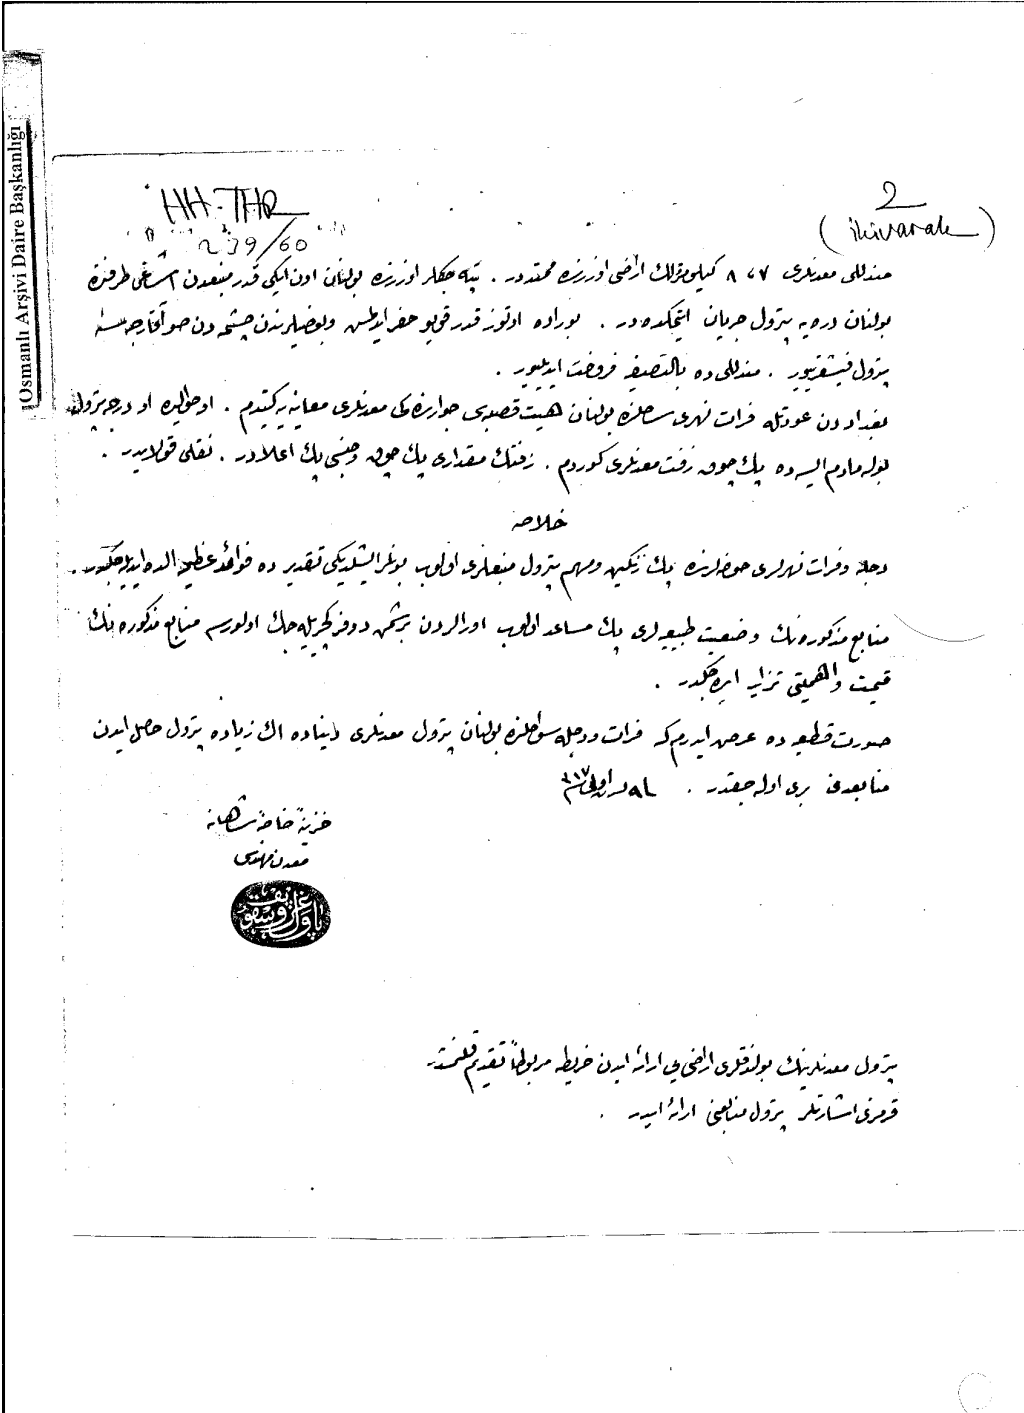 Osmanlı Arşivi Daire Başkanlığı
HH-THR
239/60
2
(ikivarak)
مندللی معدنلری ٧، ٨ كیلومترلك اراضی اوزرنده ممتددر . تپه جكلر اوزرنده بولنان اون ایكی قدر منبعدن اشاغی طرفنده
بولنان دره یه پترول جریان ایتمكده در . بوراده اوتوز قدر قویو حفر ایدلمش وبعضیلرندن چشمه دن صو آقارجه سنه
پترول فیشقیریور . مندللی ده بالتصفیه فروخت ایدیلیور .
بغداددن عودتله فرات نهری ساحلنده بولنان هیت قصبه سی جوارنده كی معدنلری معاینه یه كیتدم . او حوالیده او درجه پترول
بوله مادم ایسه ده پك چوق زفت معدنلری كوردم . زفتك مقداری پك چوق وجنسی پك اعلادر . نقلی قولایدر .
خلاصه
دجله وفرات نهرلری حوضه لرنده پك زنكین ومهم پترول منبعلری اولوب بونلر ایشلدیلدیكی تقدیرده فوائد عظیمه الده ایدیله جكدر .
منابع مذكوره نك وضعیت طبیعیه لری پك مساعد اولوب اورالردن برشمن دوفر كچیریله جك اولورسه منابع مذكوره نك
قیمت واهمیتی تزاید ایده جكدر .
صورت قطعیه ده عرض ایدرم كه فرات ودجله سواحلنده بولنان پترول معدنلری دنیاده اك زیاده پترول حاصل ایدن
منابعدن بری اوله جقدر . ٣١٧
خزینهٔ خاصهٔ شاهانه
معدن مهندسی
پترول معدنلرینك بولندقلری اراضی یی ارائه ایدن خریطه مربوطاً تقدیم قلنمشدر
قرمزی اشارتلر پترول منابعنی ارائه ایدر .